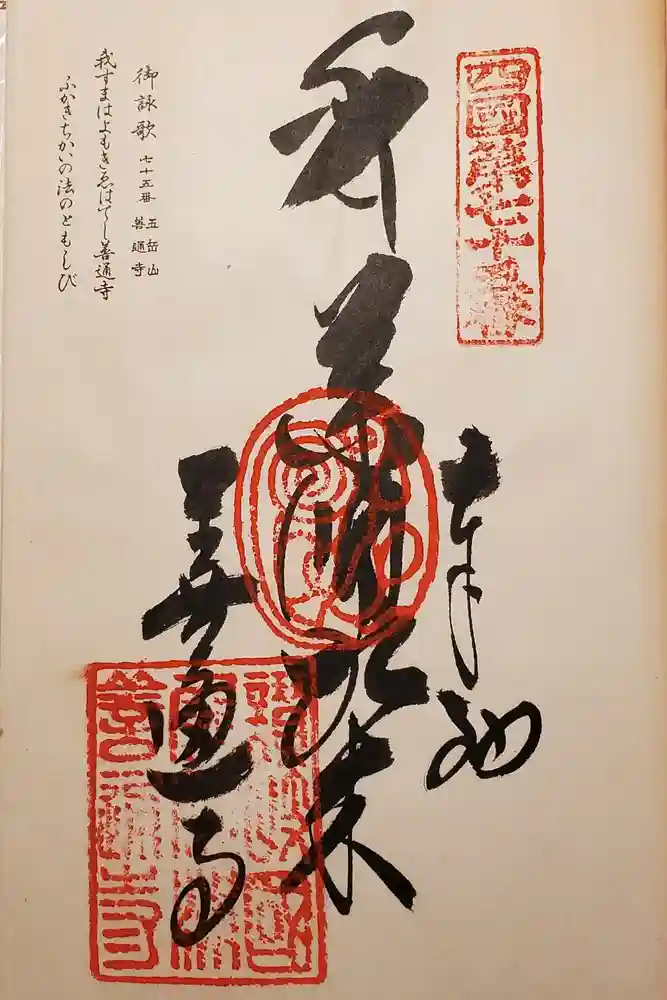 四國第七十五番
奉納
薬師如来
善通寺
御詠歌 七十五番 五岳山 善通寺
我すまはよもきゑはてし善通寺
ふかきちかいの法のともしび
善通寺